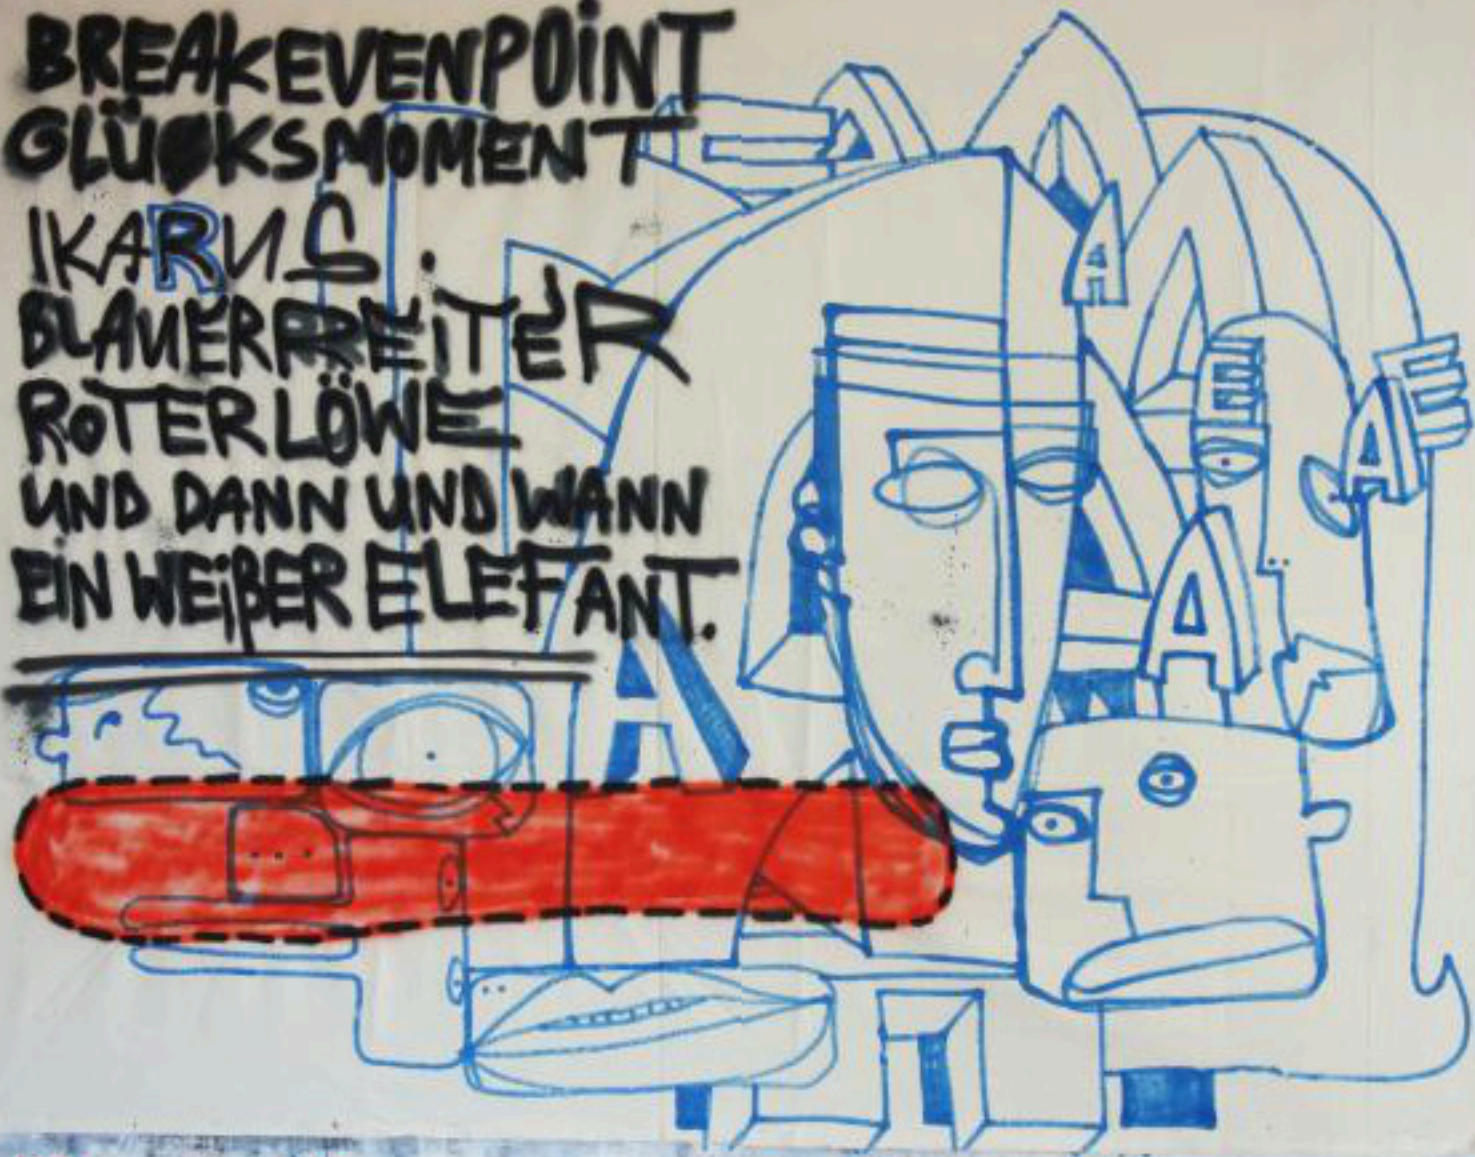 BREAKEVENPOINT
GLÜCKSMOMENT
IKARUS.
BLAUERREITER
ROTERLÖWE
UND DANN UND WANN
EIN WEIßER ELEFANT.
A
A
E
E
A
A
A